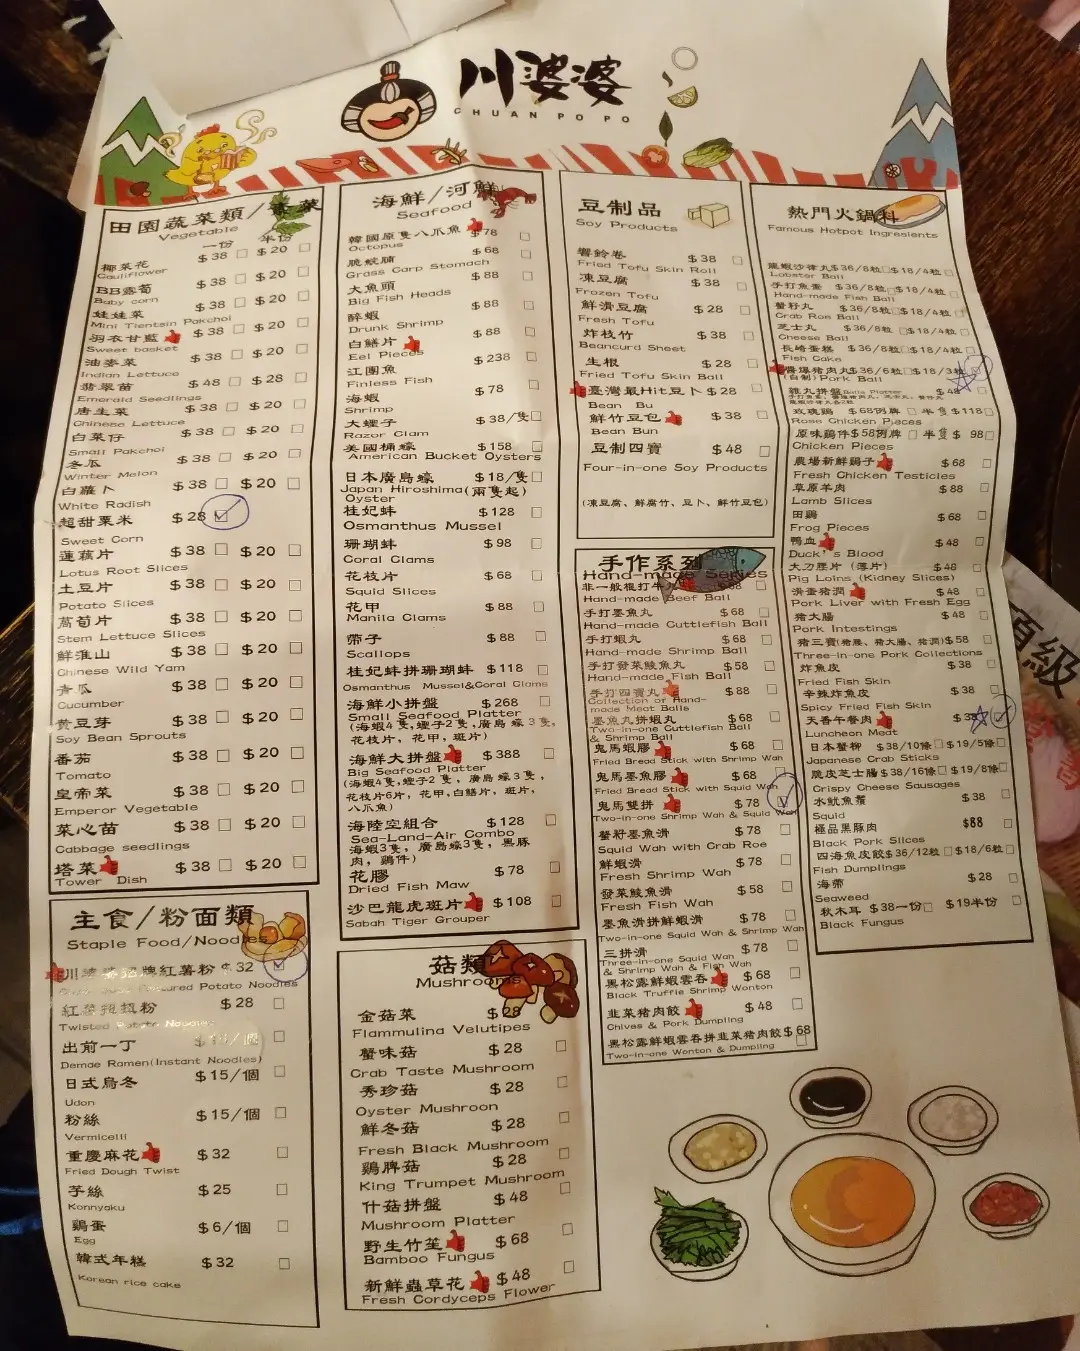 川婆婆
CHUAN PO PO
田園蔬菜類/
Vegetable
一份 半份
椰菜花 $38 $20
Cauliflower
BB露筍 $38 $20
Baby corn
娃娃菜 $38 $20
Mini Tientsin Pakchoi
羽衣甘藍 $38 $20
Sweet basket
油麥菜 $38 $20
Indian Lettuce
翡翠苗 $48 $28
Emerald Seedlings
唐生菜 $38 $20
Chinese Lettuce
白菜仔 $38 $20
Small Pakchoi
冬瓜 $38 $20
Winter Melon
白蘿卜 $38 $20
White Radish
超甜粟米 $28
Sweet Corn
蓮藕片 $38 $20
Lotus Root Slices
土豆片 $38 $20
Potato Slices
萵筍片 $38 $20
Stem Lettuce Slices
鮮淮山 $38 $20
Chinese Wild Yam
青瓜 $38 $20
Cucumber
黄豆芽 $38 $20
Soy Bean Sprouts
番茄 $38 $20
Tomato
皇帝菜 $38 $20
Emperor Vegetable
菜心苗 $38 $20
Cabbage seedlings
塔菜 $38 $20
Tower Dish
主食/粉面類
Staple Food/Noodles
川婆婆招牌紅薯粉 $32
Potato Noodles
紅薯扭扭粉 $28
Twisted Potato Noodles
出前一丁
Demae Ramen(Instant Noodles)
日式烏冬 $15/個
Udon
粉絲 $15/個
Vermicelli
重慶麻花 $32
Fried Dough Twist
芋絲 $25
Konnyaku
鷄蛋 $6/個
Egg
韓式年糕 $32
Korean rice cake
海鮮/河鮮
Seafood
韓國原隻八爪魚 $78
Octopus
脆鯇腩 $68
Grass Carp Stomach
大魚頭 $88
Big Fish Heads
醉蝦 $88
Drunk Shrimp
白鱔片 $88
Eel Pieces
江團魚 $238
Finless Fish
海蝦 $78
Shrimp
大蟶子 $38/隻
Razor Clam
美國桶蠔 $158
American Bucket Oysters
日本廣島蠔 $18/隻
Japan Hiroshima(兩隻起)
Oyster
桂妃蚌 $128
Osmanthus Mussel
珊瑚蚌 $98
Coral Clams
花枝片 $68
Squid Slices
花甲 $88
Manila Clams
帶子 $88
Scallops
桂妃蚌拼珊瑚蚌 $118
Osmanthus Mussel&Coral Clams
海鮮小拼盤 $268
Small Seafood Platter
(海蝦4隻,蟶子2隻,廣島蠔3隻,
花枝片, 花甲, 斑片)
海鮮大拼盤 $388
Big Seafood Platter
(海蝦4隻,蟶子2隻, 廣島蠔3隻,
花枝片6片, 花甲,白鱔片, 斑片,
八爪魚)
海陸空組合 $128
Sea-Land-Air Combo
海蝦3隻, 廣島蠔3隻, 黑豚
肉, 鷄件)
花膠 $78
Dried Fish Maw
沙巴龍虎斑片 $108
Sabah Tiger Grouper
菇類
Mushrooms
金菇菜 $28
Flammulina Velutipes
蟹味菇 $28
Crab Taste Mushroom
秀珍菇 $28
Oyster Mushroon
鮮冬菇 $28
Fresh Black Mushroom
鷄脾菇 $28
King Trumpet Mushroom
什菇拼盤 $48
Mushroom Platter
野生竹笙 $68
Bamboo Fungus
新鮮蟲草花 $48
Fresh Cordyceps Flower
豆制品
Soy Products
響鈴卷 $38
Fried Tofu Skin Roll
凍豆腐 $38
Frozen Tofu
鮮滑豆腐 $28
Fresh Tofu
炸枝竹 $38
Beancurd Sheet
生根 $28
Fried Tofu Skin Ball
臺灣最Hit豆卜 $28
Bean Bu
鮮竹豆包 $38
Bean Bun
豆制四寶 $48
Four-in-one Soy Products
(凍豆腐、鮮腐竹、豆卜、鮮竹豆包)
手作系列
Hand-made Series
非一般棍打牛丸 $88
Hand-made Beef Ball
手打墨魚丸 $68
Hand-made Cuttlefish Ball
手打蝦丸 $68
Hand-made Shrimp Ball
手打發菜鯪魚丸 $58
Hand-made Fish Ball
手打四寶丸 $88
Collection of Hand-
made Meat Balls
墨魚丸拼蝦丸 $68
Two-in-one Cuttlefish Ball
& Shrimp Ball
鬼馬蝦膠 $68
Fried Bread Stick with Shrimp Wah
鬼馬墨魚膠 $68
Fried Bread Stick with Squid Wah
鬼馬雙拼 $78
Two-in-one Shrimp Wah & Squid Wah
蟹籽墨魚滑 $78
Squid Wah with Crab Roe
鮮蝦滑 $78
Fresh Shrimp Wah
發菜鯪魚滑 $58
Fresh Fish Wah
墨魚滑拼鮮蝦滑 $78
Two-in-one Squid Wah & Shrimp Wah
三拼滑 $78
Three-in-one Squid Wah
& Shrimp Wah & Fish Wah
黑松露鮮蝦雲吞 $68
Black Truffle Shrimp Wonton
韭菜猪肉餃 $48
Chives & Pork Dumpling
黑松露鮮蝦雲吞拼韭菜猪肉餃 $68
Two-in-one Wonton & Dumpling
熱門火鍋料
Famous Hotpot Ingredients
龍蝦沙律丸 $36/8粒 $18/4粒
Lobster Ball
手打魚蛋 $36/8粒 $18/4粒
Hand-made Fish Ball
蟹籽丸 $36/8粒 $18/4粒
Crab Roe Ball
芝士丸 $36/8粒 $18/4粒
Cheese Ball
長崎蛋糕 $36/8粒 $18/4粒
Fish Cake
醬爆猪肉丸 $36/6粒 $18/3粒
(自制) Pork Ball
雜丸拼盤 Balls Platter $48
玫瑰鷄 $68例牌 半隻$118
Rose Chicken Pieces
原味鷄件 $58例牌 半隻$98
Chicken Pieces
農場新鮮鷄子 $68
Fresh Chicken Testicles
草原羊肉 $88
Lamb Slices
田鷄 $68
Frog Pieces
鴨血 $48
Duck's Blood
大刀腰片 (薄片) $48
Pig Loins (Kidney Slices)
滑蛋猪潤 $48
Pork Liver with Fresh Egg
猪大腸 $48
Pork Intestings
猪三寶(猪腰、猪大腸、猪潤) $58
Three-in-one Pork Collections
炸魚皮 $38
Fried Fish Skin
辛辣炸魚皮 $38
Spicy Fried Fish Skin
天香午餐肉 $38
Luncheon Meat
日本蟹柳 $38/10條 $19/5條
Japanese Crab Sticks
脆皮芝士腸 $38/16條 $19/8條
Crispy Cheese Sausages
水魷魚鬚 $38
Squid
極品黑豚肉 $88
Black Pork Slices
四海魚皮餃 $36/12粒 $18/6粒
Fish Dumplings
海帶 $28
Seaweed
秋木耳 $38一份 $19半份
Black Fungus
頂級